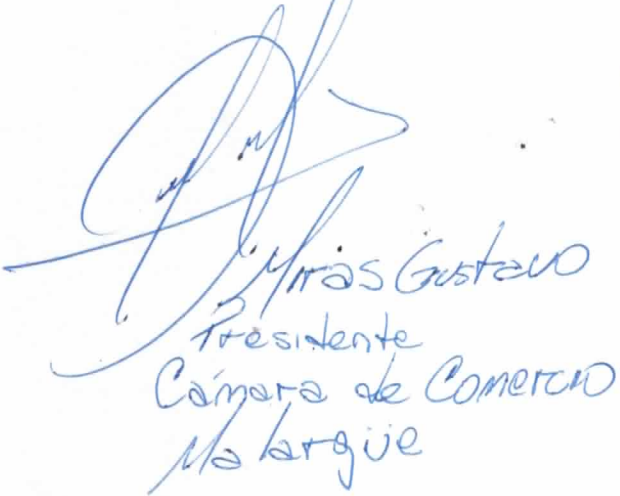 Miras Gustavo
Presidente
Cámara de Comercio
Malargüe